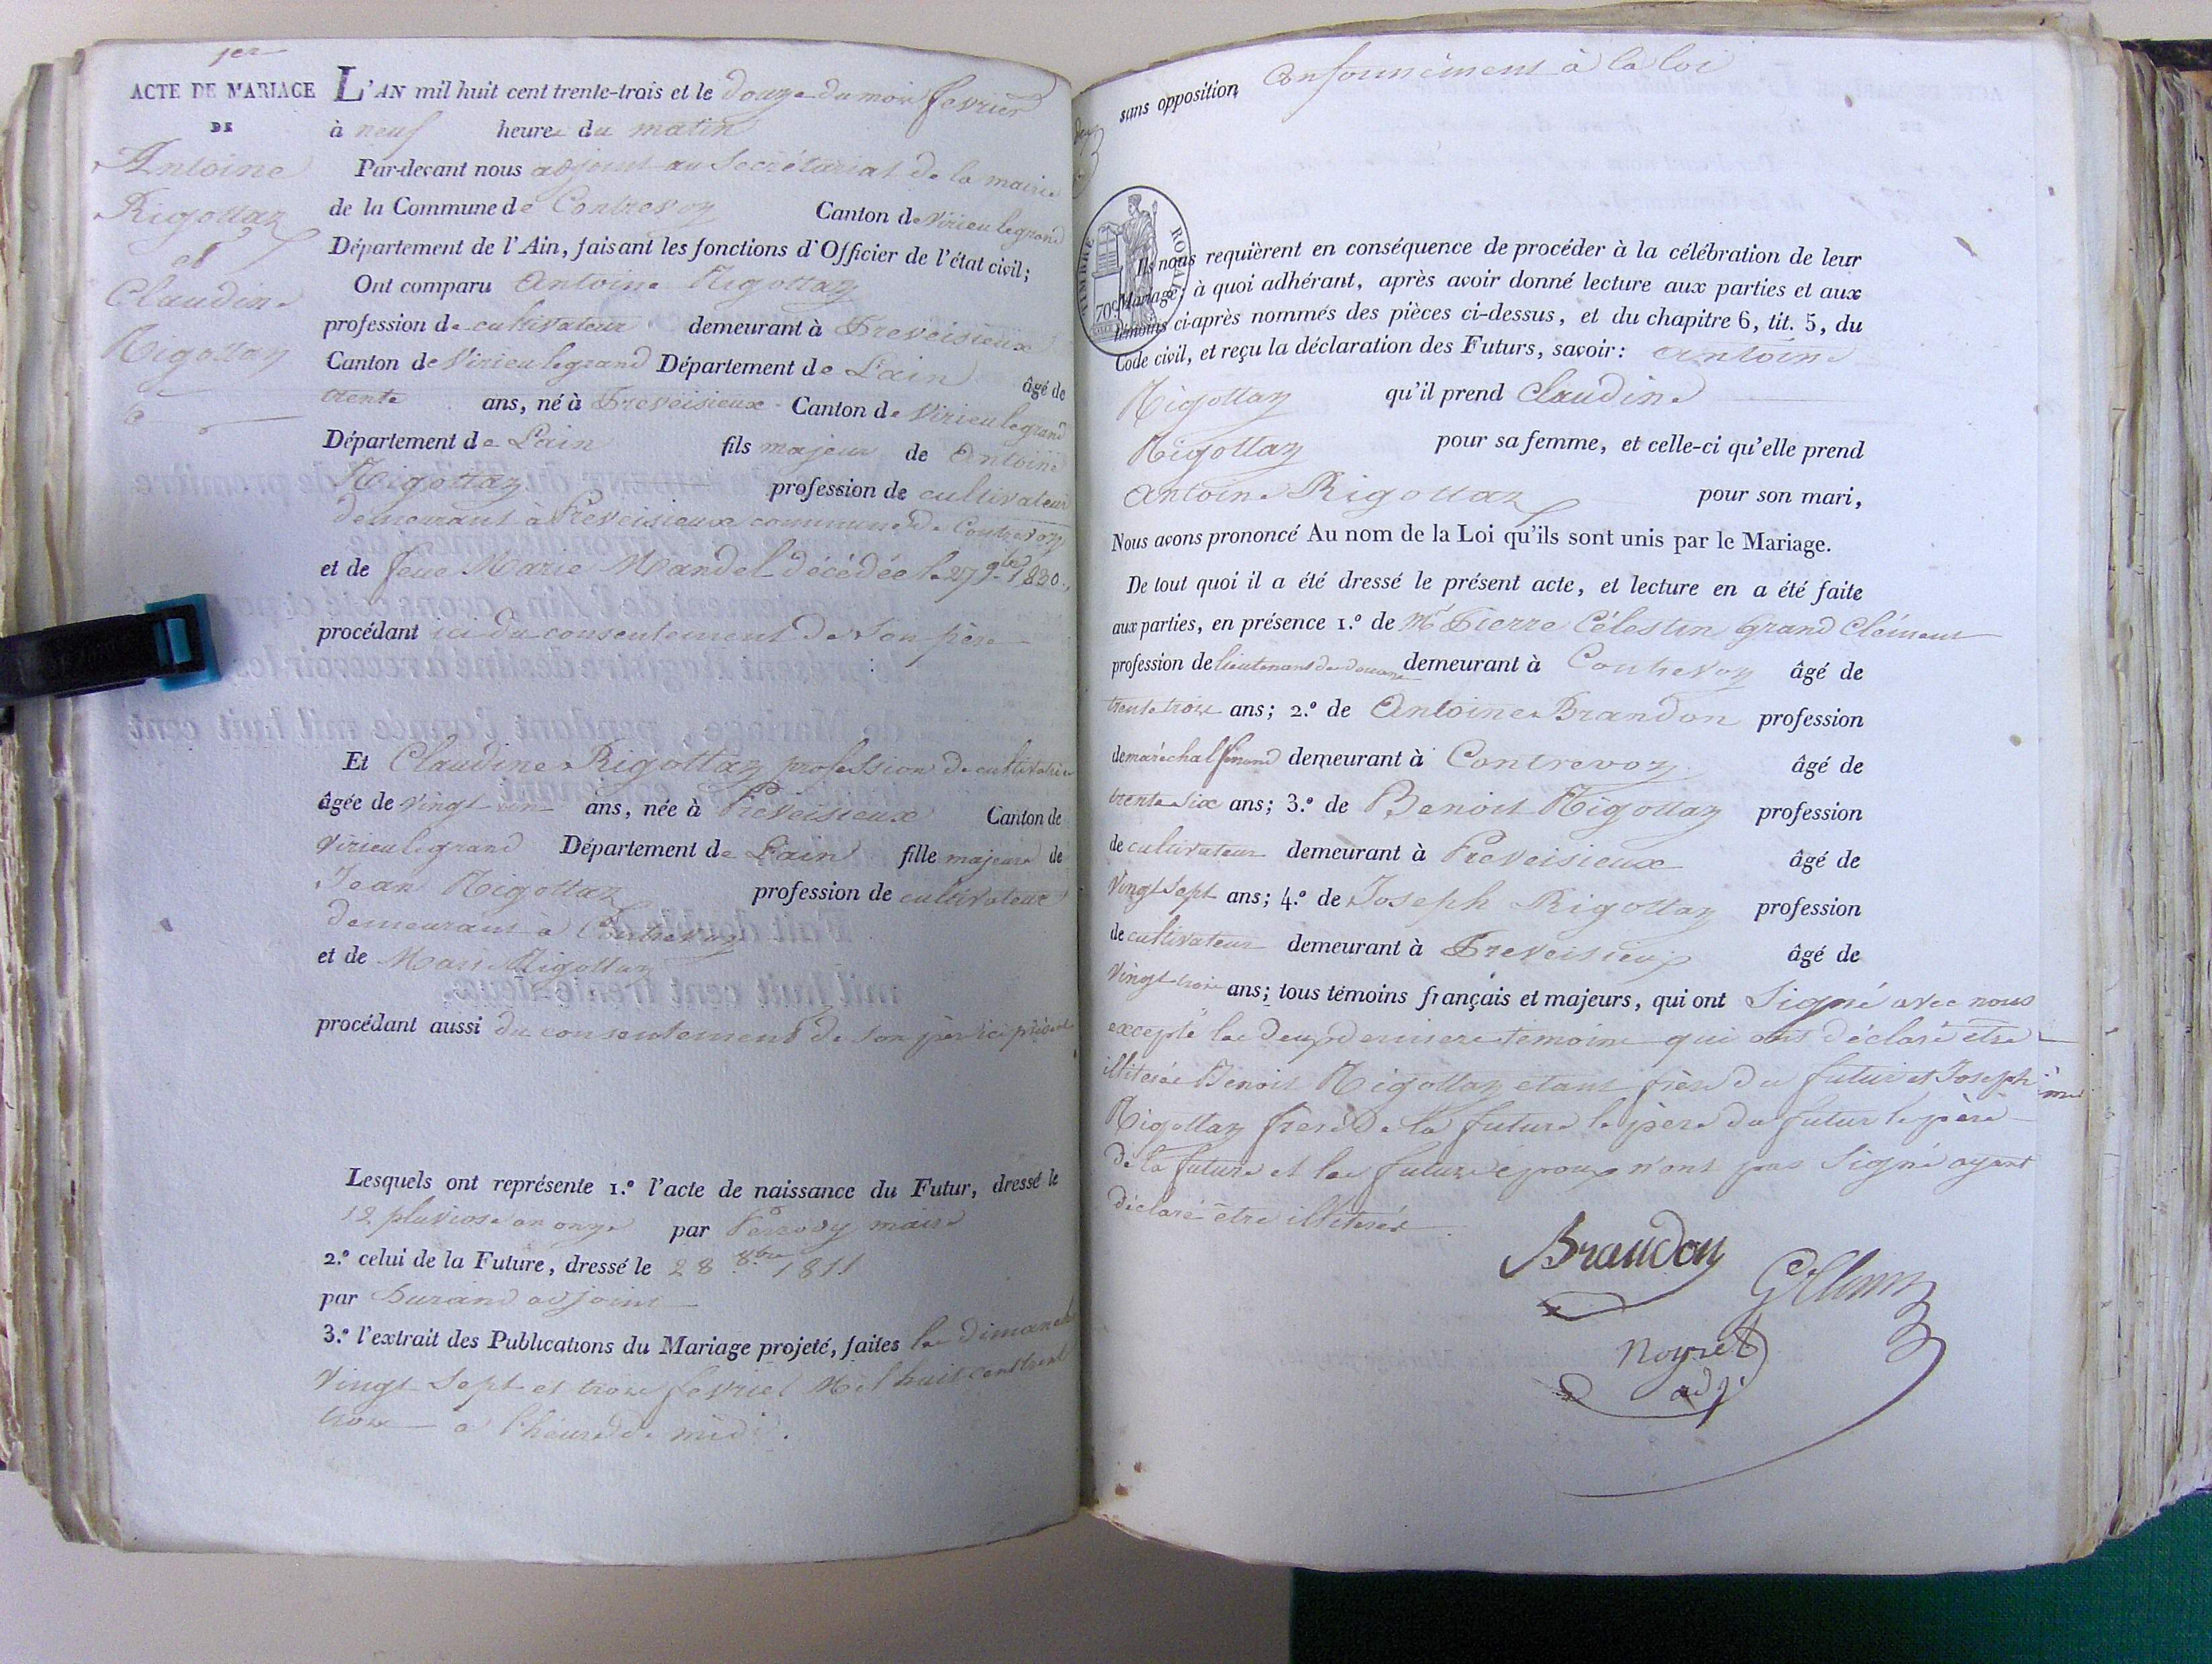 1er
ACTE DE MARIAGE
DE
Antoine
Rigottaz
et
Claudine
Rigottaz
L'AN mil huit cent trente-trois et le douze du mois fevrier
à neuf heures du matin
Par-devant nous adjoint au Secrétariat de la mairie
de la Commune de Contrevoz Canton de Virieu le grand
Département de l'Ain, faisant les fonctions d'Officier de l'état civil;
Ont comparu Antoine Rigottaz
profession de cultivateur demeurant à Preveisieux
Canton de Virieu le grand Département de L'ain âgé de
trente ans, né à Preveisieux Canton de Virieu le grand
Département de L'ain fils majeur de Antoine
Rigottaz profession de cultivateur
demeurant à Preveisieux commune de Contrevoz
et de feue Marie Mandel décédée le 27 9bre 1830.
procédant ici du consentement de son père
Et Claudine Rigottaz profession de cultivatrice
âgée de vingt un ans, née à Preveisieux Canton de
Virieu le grand Département de L'ain fille majeure de
Jean Rigottaz profession de cultivateur
demeurant à Contrevoz
et de Marie Rigottaz
procédant aussi du consentement de son père ici présent
Lesquels ont représente 1.° l'acte de naissance du Futur, dressé le
12 pluviose an onze par maire
2.° celui de la Future, dressé le 28 8bre 1811
par Durand adjoint
3.° l'extrait des Publications du Mariage projeté, faites les dimanches
vingt Sept et trois fevrier Mil huit cent trente
trois à l'heure de midi.
sans opposition Conformément à la loi
TIMBRE ROYAL
70c
Ils nous requièrent en conséquence de procéder à la célébration de leur
Mariage; à quoi adhérant, après avoir donné lecture aux parties et aux
témoins ci-après nommés des pièces ci-dessus, et du chapitre 6, tit. 5, du
Code civil, et reçu la déclaration des Futurs, savoir: Antoine
Rigottaz qu'il prend Claudine
Rigottaz pour sa femme, et celle-ci qu'elle prend
Antoine Rigottaz pour son mari,
Nous avons prononcé Au nom de la Loi qu'ils sont unis par le Mariage.
De tout quoi il a été dressé le présent acte, et lecture en a été faite
aux parties, en présence 1.° de Mr Pierre Célestin Grand Clément
profession de lieutenant de douane demeurant à Contrevoz âgé de
trente trois ans; 2.° de Antoine Brandon profession
de maréchal ferrand demeurant à Contrevoz âgé de
trente six ans; 3.° de Benoit Rigottaz profession
de cultivateur demeurant à Preveisieux âgé de
vingt sept ans; 4.° de Joseph Rigottaz profession
de cultivateur demeurant à Preveisieux âgé de
vingt trois ans; tous témoins français et majeurs, qui ont Signé avec nous
excepté les deux derniers témoins qui ont déclaré être
illiterés Benoit Rigottaz etant frère du futur et Joseph
Rigottaz frere de la future le père du futur le père
de la future et les futurs époux n'ont pas Signé ayant
déclaré être illiterés
Brandon
GClém
Noyret
adj.